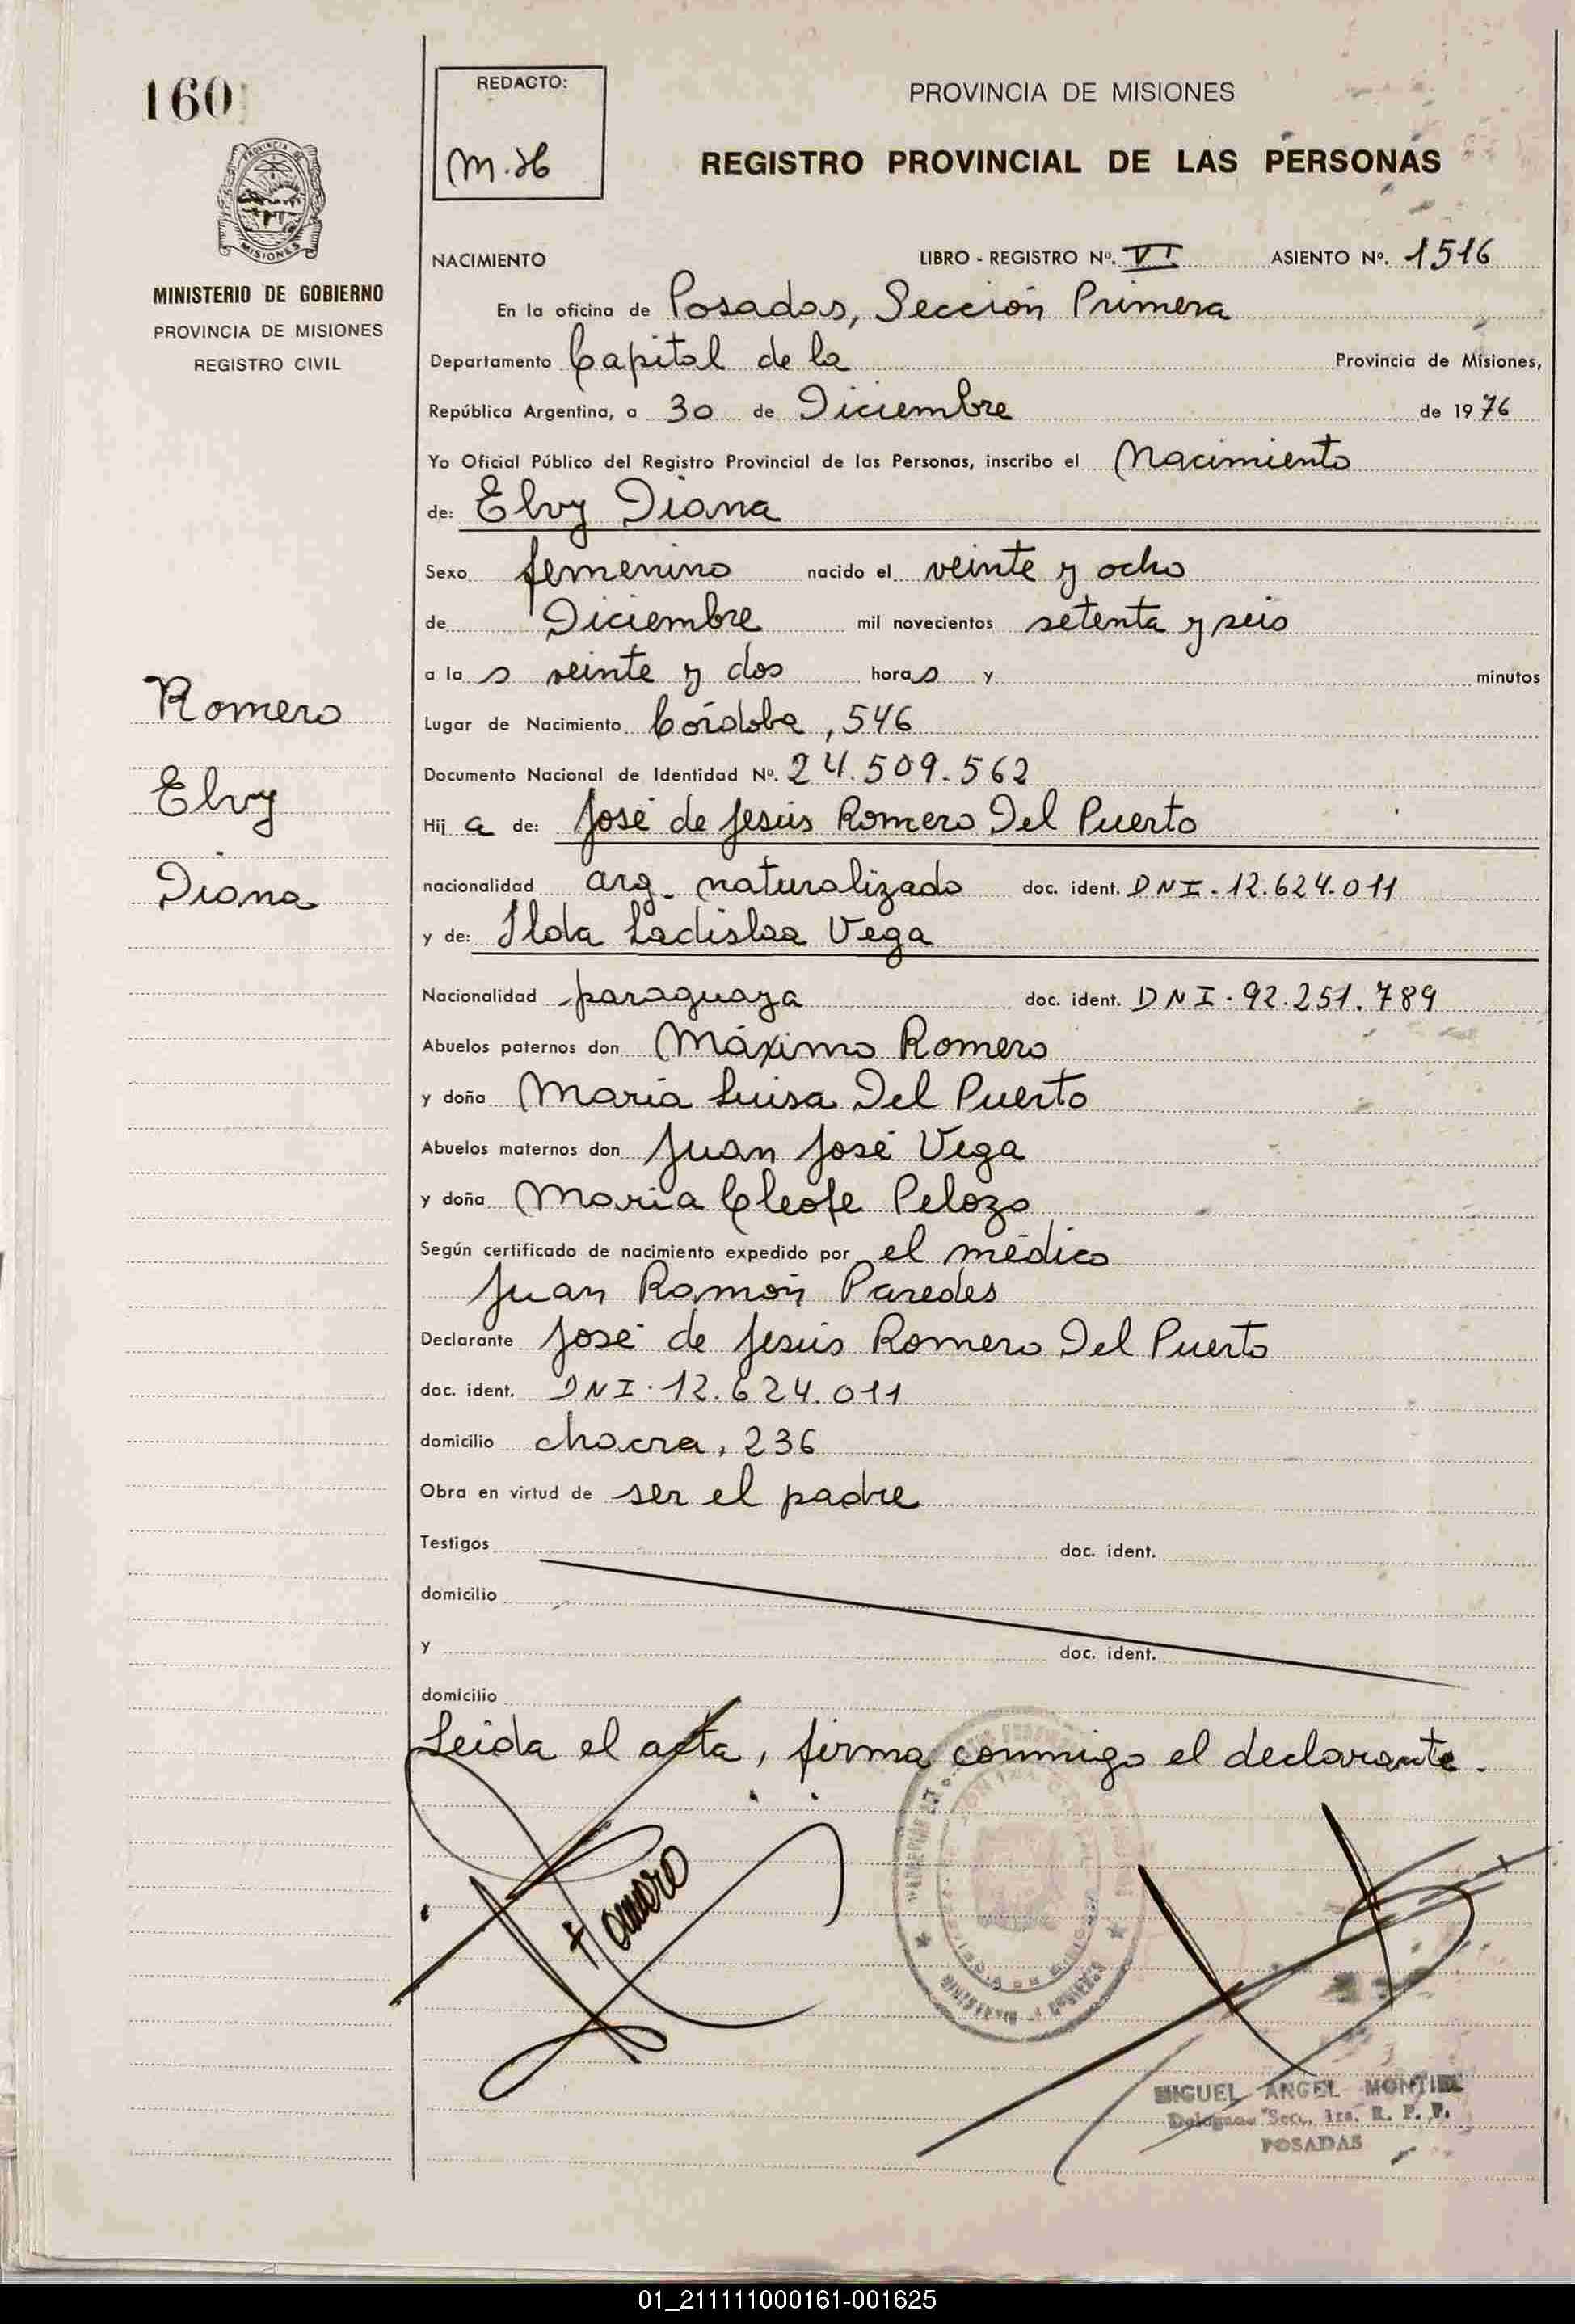 160
REDACTO:
M.H
PROVINCIA DE MISIONES
REGISTRO PROVINCIAL DE LAS PERSONAS
PROVINCIA DE
MISIONES
MINISTERIO DE GOBIERNO
PROVINCIA DE MISIONES
REGISTRO CIVIL
NACIMIENTO LIBRO - REGISTRO Nº. VI ASIENTO Nº. 1516
En la oficina de Posadas, Sección Primera
Departamento Capital de la Provincia de Misiones,
República Argentina, a 30 de Diciembre de 1976
Yo Oficial Público del Registro Provincial de las Personas, inscribo el Nacimiento
de: Elvy Diana
Sexo femenino nacido el veinte y ocho
de Diciembre mil novecientos setenta y seis
a la s veinte y dos horas y minutos
Romero
Lugar de Nacimiento Córdoba, 546
Documento Nacional de Identidad Nº. 24.509.562
Elvy
Hij a de: José de Jesús Romero Del Puerto
Diana
nacionalidad arg. naturalizado doc. ident. DNI-12.624.011
y de: Ilda Ladislaa Vega
Nacionalidad paraguaya doc. ident. DNI-92.251.789
Abuelos paternos don Máximo Romero
y doña María Luisa Del Puerto
Abuelos maternos don Juan José Vega
y doña María Cleofe Pelozo
Según certificado de nacimiento expedido por el médico
Juan Ramón Paredes
Declarante José de Jesús Romero Del Puerto
doc. ident. DNI-12.624.011
domicilio chacra, 236
Obra en virtud de ser el padre
Testigos doc. ident.
domicilio
y doc. ident.
domicilio
Leida el acta, firma conmigo el declarante.
Romero
MIGUEL ANGEL MONTIEL
Delegado Secc. 1ra. R. P. P.
POSADAS
01_211111000161-001625